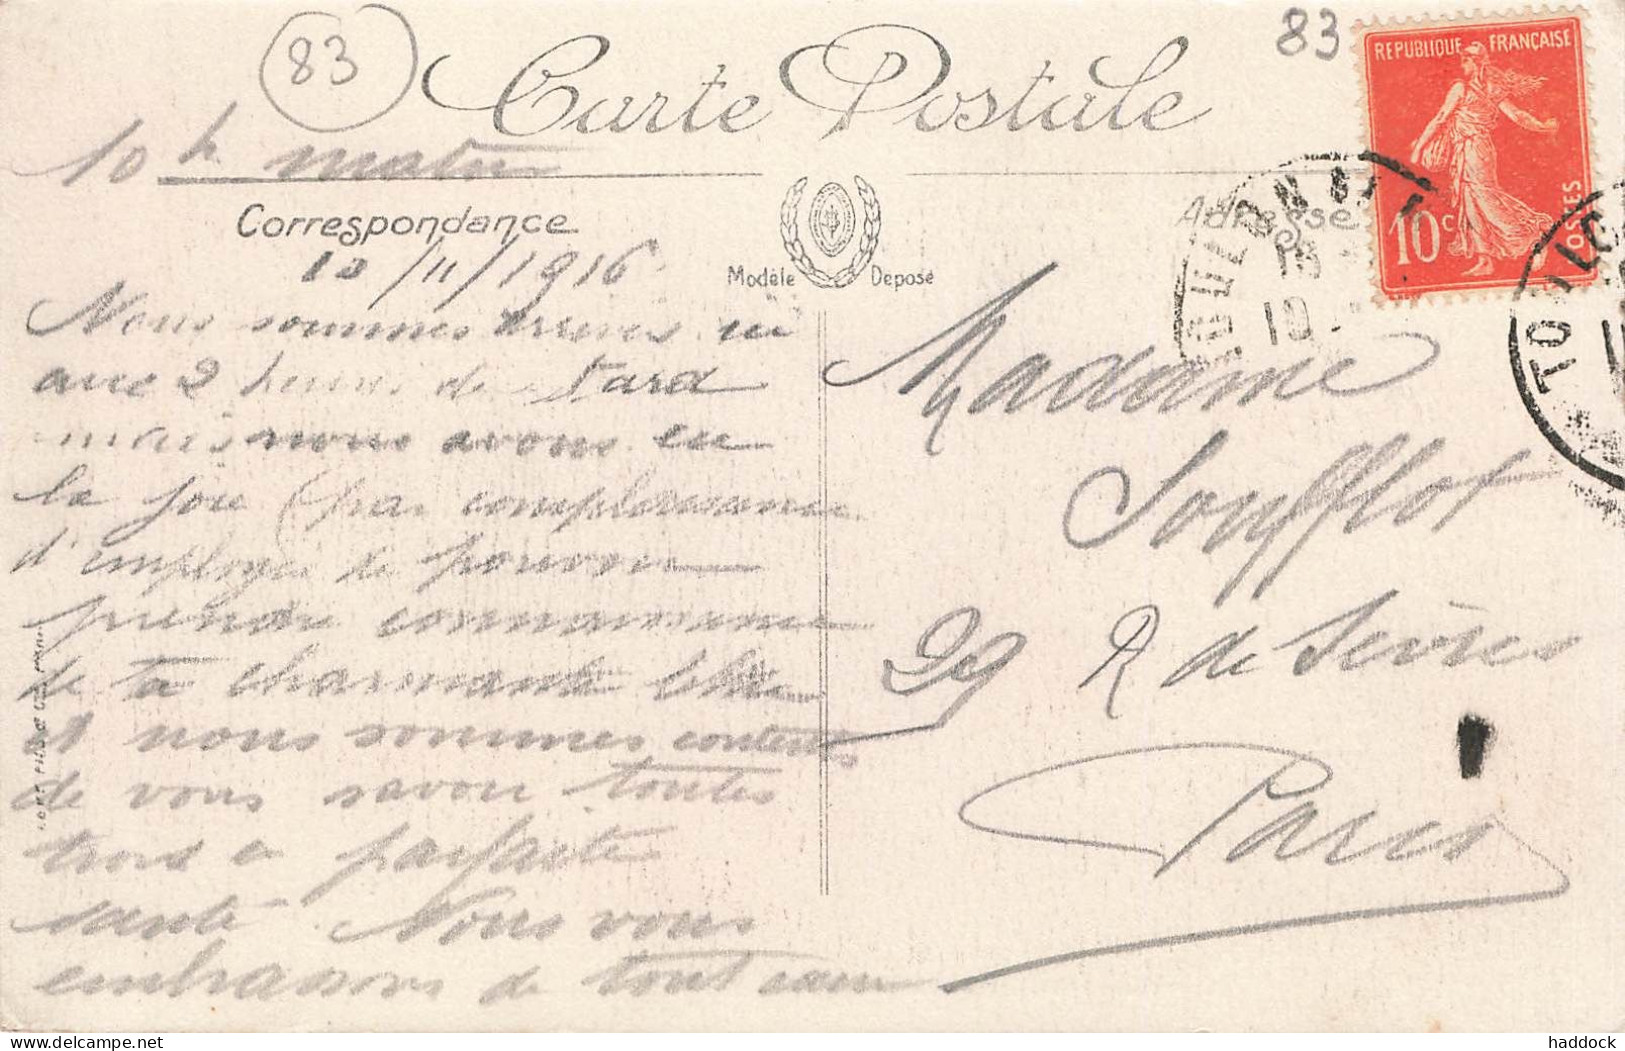 83
83
Carte Postale
REPUBLIQUE FRANÇAISE
10c
POSTES
10 h matin
Correspondance
Modèle Déposé
Adresse
TOULON
TOULON
10/11/1916
Nous sommes arrivés ici
avec 2 heures de retard
mais nous avons eu
la joie (par complaisance
d'employé de pouvoir
prendre connaissance
de ta charmante lettre
et nous sommes contents
de vous savoir toutes
trois en parfaite
santé. Nous vous
embrassons de tout cœur
Madame
Soufflot
29 R de Sèvres
Paris
haddock